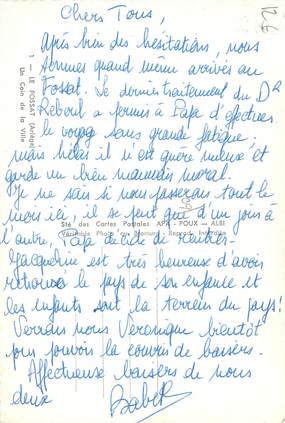 Chers Tous,
Après bien des hesitations, nous
sommes quand même arrivés au
Fossat. Le dernier traitement du Dr
Reboul a permis à Papa d'effectuer
le voyage sans grande fatigue;
mais hélas il n'est guère mieux et
garde un bien mauvais moral.
Je ne sais si nous passerons tout le
mois ici, il se peut que d'un jour à
l'autre, Papa décide de rentrer.
Jacqueline est très heureuse d'avoir
retrouvé le pays de son enfance et
les enfants sont la terreur du pays!
Verrons nous Véronique bientôt
pour pouvoir la couvrir de baisers.
Affectueux baisers de nous
deux
1 — LE FOSSAT (Ariège)
Un Coin de la Ville
Sté des Cartes Postales APA - POUX — ALBI
Véritable Photo au Bromure - Reprod. Interdite